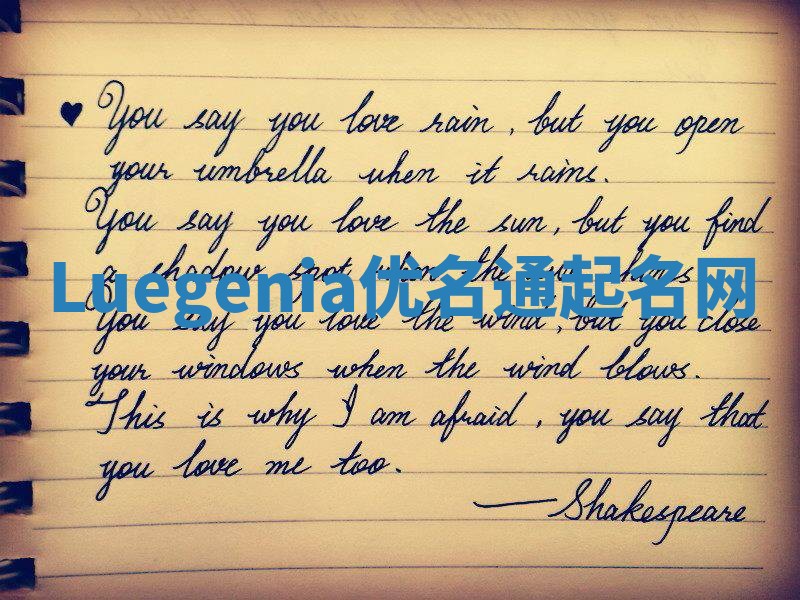 ♥ You say you love rain, but you open
your umbrella when it rains.
You say you love the sun, but you find
a shadow spot when the sun shines
Luegenia优名通起名网
You say you love the wind, but you close
your windows when the wind blows.
This is why I am afraid, you say that
you love me too.
—Shakespeare